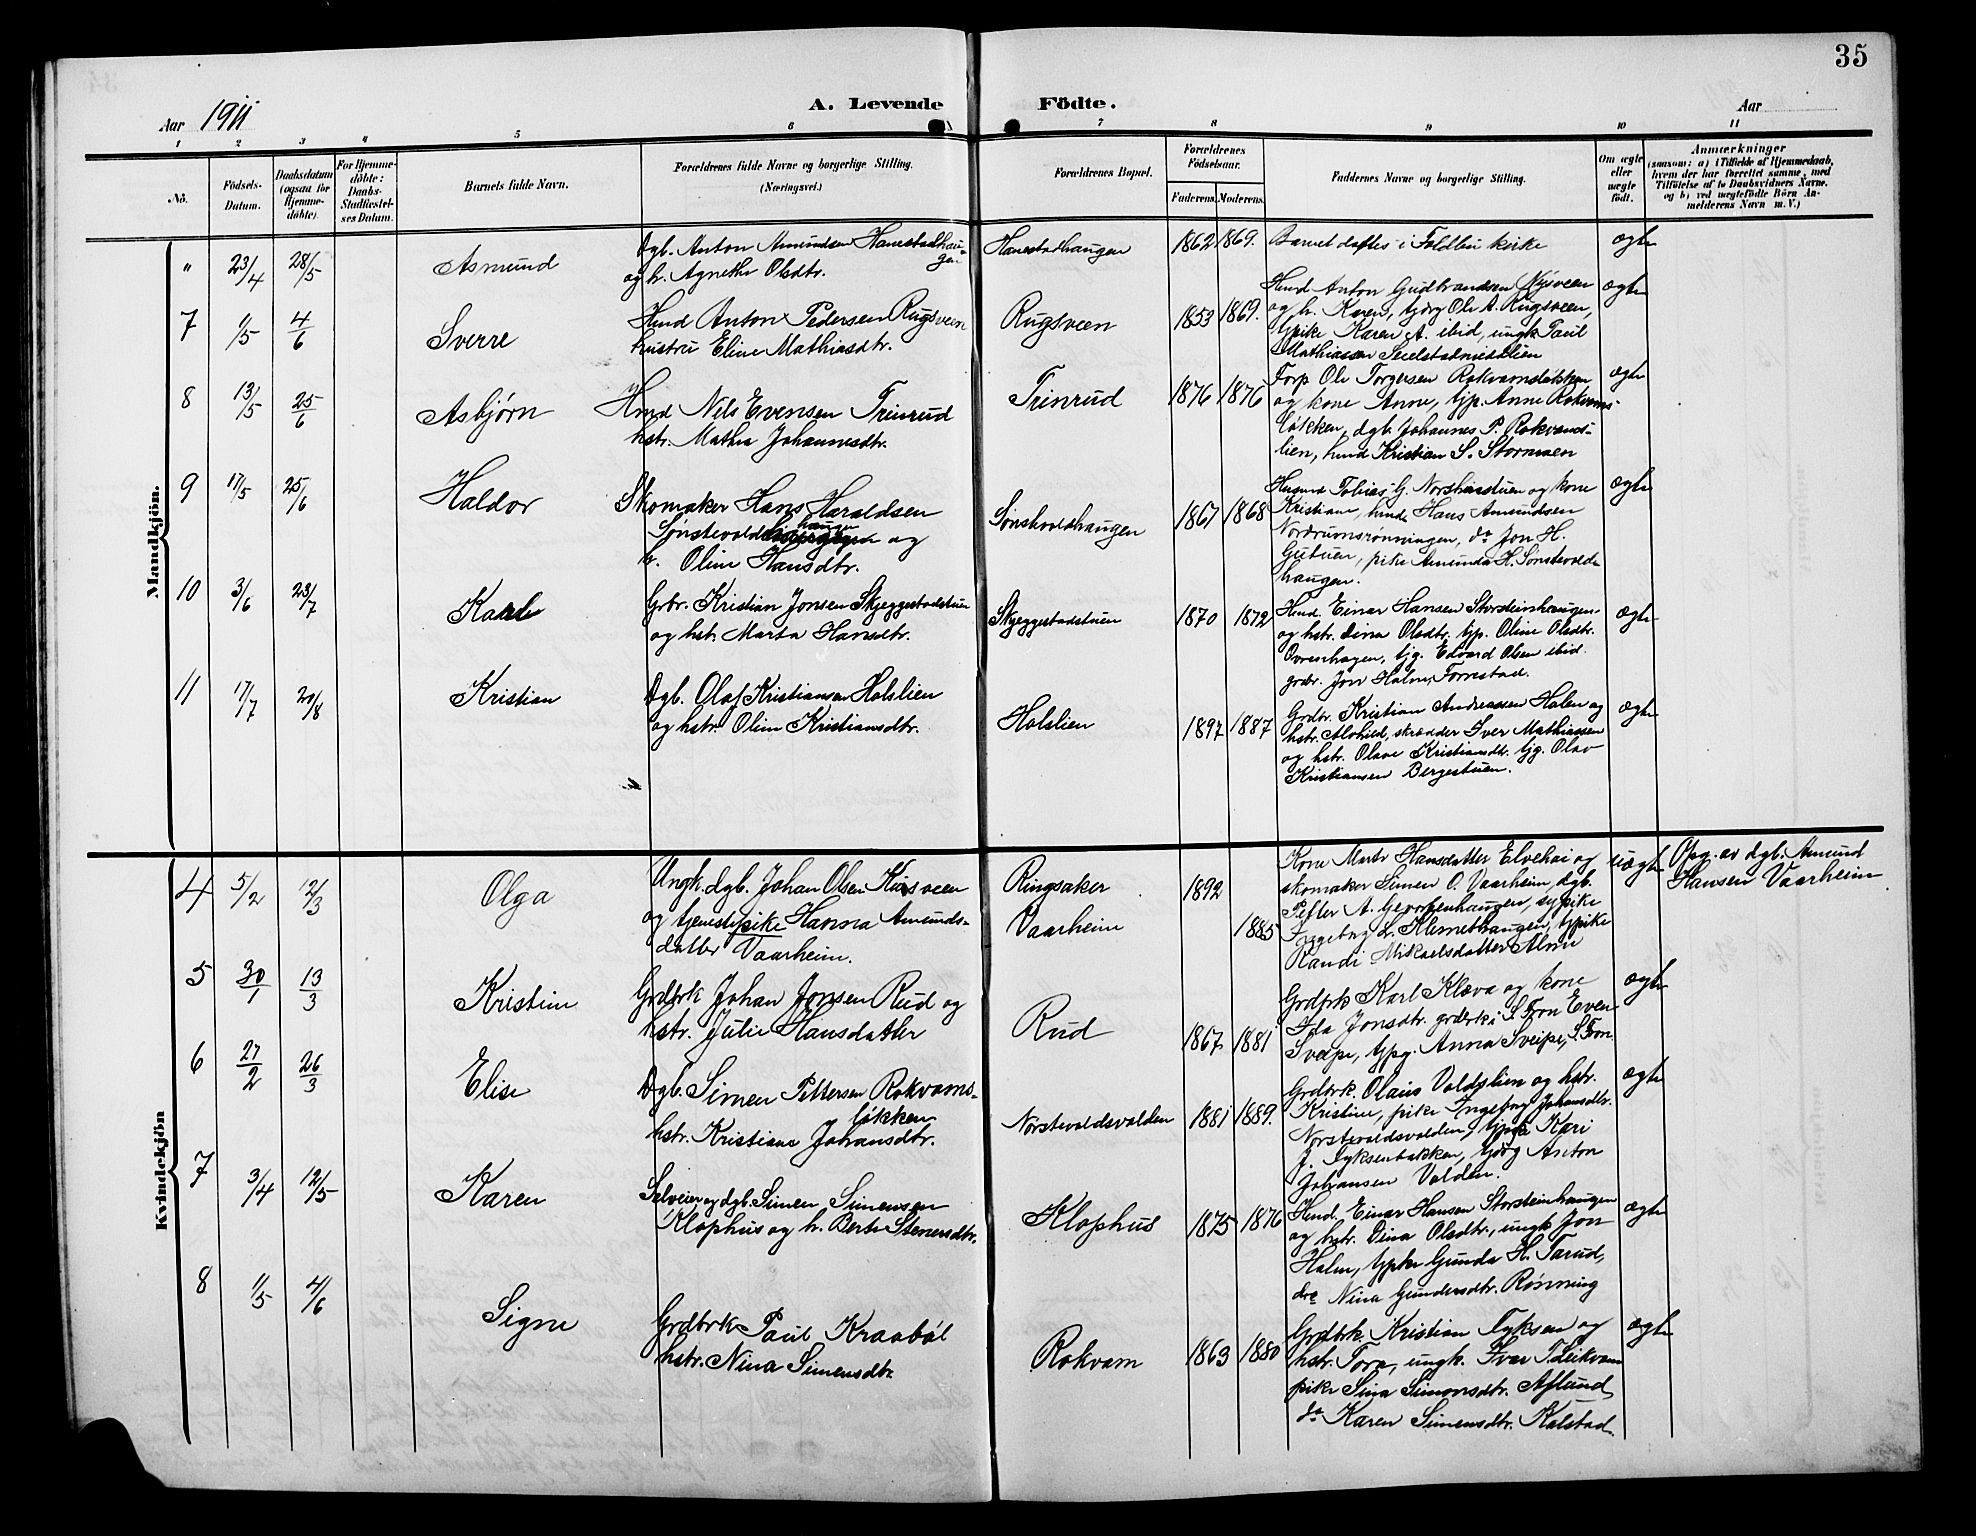 35
Aar 1911
A. Levende Födte.
Aar
1 2 3 4 5 6 7 8 9 10 11
No.
Födsels-Datum.
Daabsdatum (ogsaa for Hjemme-döbte).
For Hjemme-döbte: Daabs-Stadfæstel-ses Datum.
Barnets fulde Navn.
Forældrenes fulde Navne og borgerlige Stilling.
(Næringsvei.)
Forældrenes Bopæl.
Forældrenes Födselsaar.
Faderens. Moderens.
Faddernes Navne og borgerlige Stilling.
Om ægte eller uægte født.
Anmærkninger
(saasom: a) i Tilfælde af Hjemmedaab,
hvem der har forrettet samme, med
Tilföielse af to Daabsvidners Navne,
og b) ved uægtefödte Börn An-
melderens Navn m. V.)
Mandkjön.
" 23/4 28/5 Asmund
Dgb. Anton Amundsen Hanestadhau-
gen
og h. Agnethe Olsdtr.
Hanestadhaugen 1862 1869.
Barnet døftes i Foldbu kirke
ægte
7 1/5 4/6 Sverre
Hmd Anton Pedersen Rugsveen
hustru Eline Mathiasdtr.
Rugsveen 1853 1869.
Hmd Anton Gudbrandsen Nysveen
og h. Karen, tjdrg Ole A. Rugsveen,
tjpike Karen A. ibid, ungk Paul
Mathiassen
ægte
8 13/5 25/6 Asbjørn
Hmd Nils Evensen Trinrud
hstr. Mathea Johannesdtr.
Trinrud 1876 1876
Forp Ole Torgersen Rokvamsløkken
og kone Anne, tjp. Anne Rokvams-
løkken, dgb. Johannes P. Rokvams-
lien, hmd Kristian S. Stormoen
ægte
9 17/5 25/6 Haldor
Skomaker Hans Haraldsen
Sønstevold haugen og
h. Oline Hansdtr.
Sønstvoldhaugen 1867 1868
Husmd Tobias G. Norshusstuen og kone
Kristiane, hmd Hans Amundsen
Nordrumsrønningen, do Jon H.
pike Amunda H. Sønstevolds
haugen.
ægte
10 3/6 23/7 Kaare
Grbr. Kristian Jonsen Skjeggestadstuen
og hstr. Marta Hansdtr.
Skjeggestadstuen 1870 1872
Hmd. Einar Hansen Storsteinhaugen
og hstr. Dina Olsdtr. tjp. Oline Olsdtr.
tjg. Edvard Olsen ibid.
grdbr. Jon Halme, Forrestad.
ægte
11 17/7 20/8 Kristian
Dgb. Olaf Kristiansen Holslien
og hstr. Oline Kristiansdtr.
Holslien 1897 1887
Grdbr. Kristian Andreassen Holen og
hstr. Alvhild, skrædder Iver Mathiassen
og hstr. Olave Kristiansdtr. tjg. Olav
Kristiansen Bergestuen.
ægte
Kvindekjön
4 5/2 12/3 Olga
Ungk. dgb. Johan Olsen Kiisveen
og tjenestepike Hanna Amunds-
datter Vaarheim.
Ringsaker 1892
Vaarheim 1885
Kone Marte Hansdatter Elvehoi og
skomaker Simen O. Vaarheim, dgb.
Petter A. sypike
Ingeborg L. Klemethaugen, tjpike
Randi Mikaelsdatter Alme
uægte
Opg. av dgb. Amund
Hansen Vaarheim
5 30/1 13/3 Kristine
Grdbrk Johan Jonsen Rud og
hstr. Julie Hansdatter
Rud 1867 1881
Grdbrk Karl Kleva og kone
Ida Jonsdtr. grdbrk i S. Fron Even
Sveipe, tjpg. Anna Sveipe, S. Fron
ægte
6 27/2 26/3 Elise
Dgb. Simen Pettersen Rokvams-
løkken
hstr. Kristiane Johansdtr.
Norstevoldsvolden 1881 1889.
Grdbrk. Olaus Voldslien og hstr.
Kristine, pike Ingeborg Johansdtr.
Norstevoldsvolden, tjpge Kari
J. Tyksenbakken, tjdrg Anton
Johansen Volden.
ægte
7 3/4 12/5 Karen
Selveier og dgb. Simen Simensen
Klophus og h. Berte Stenersdtr.
Klophus 1875 1876
Hmd. Einar Hansen Storsteinhaugen
og hstr. Dina Olsdtr., ungk Jon
Halme, tjpike Gunda H. Tarud,
do Nina Gundersdtr. Rønning
ægte
8 1/5 4/6 Signe
Grdbrk Paul Kraabøl
hstr. Nina Simensdtr.
Rokvam 1863 1880
Grdbrk. Kristian Tyksen og
hstr. Tora, ungk. Ivar
pike Sina Simonsdtr. Aflund,
do Karen Simensdtr. Kalstad.
ægte